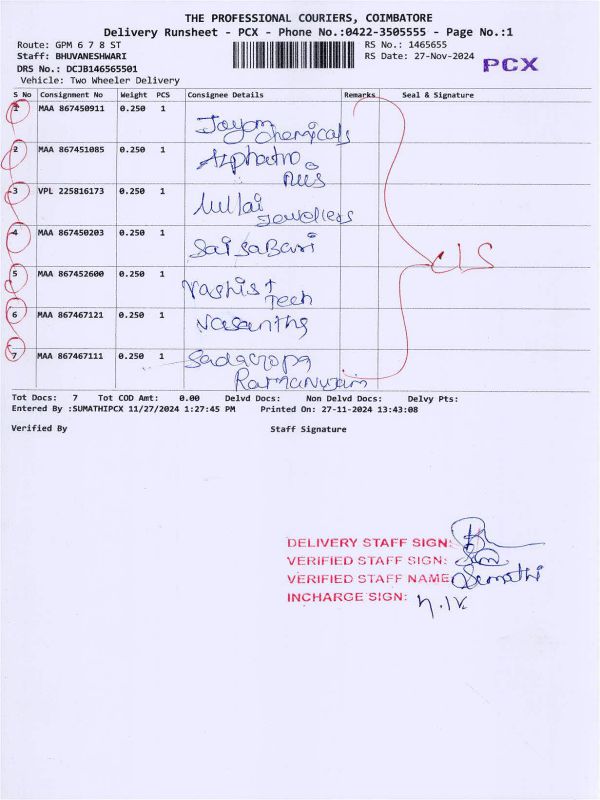 THE PROFESSIONAL COURIERS, COIMBATORE
Delivery Runsheet - PCX - Phone No.:0422-3505555 - Page No.:1
Route: GPM 6 7 8 ST RS No.: 1465655
Staff: BHUVANESHWARI RS Date: 27-Nov-2024 PCX
DRS No.: DCJB146565501
Vehicle: Two Wheeler Delivery
S No Consignment No Weight PCS Consignee Details Remarks Seal & Signature
1 MAA 867450911 0.250 1 Jayam
Chemicals
2 MAA 867451085 0.250 1
3 VPL 225816173 0.250 1 Mullai
Jewollers
4 MAA 867450203 0.250 1 Sai SaBari
5 MAA 867452600 0.250 1 Vashist
Tech
6 MAA 867467121 0.250 1 Vasantha
7 MAA 867467111 0.250 1 Sadagopa
Ramanujam
Tot Docs: 7 Tot COD Amt: 0.00 Delvd Docs: Non Delvd Docs: Delvy Pts:
Entered By :SUMATHIPCX 11/27/2024 1:27:45 PM Printed On: 27-11-2024 13:43:08
Verified By Staff Signature
DELIVERY STAFF SIGN:
VERIFIED STAFF SIGN:
VERIFIED STAFF NAME: Sumathi
INCHARGE SIGN: